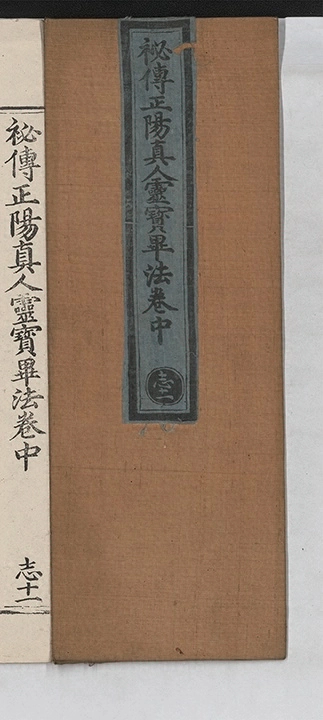 祕傳正陽真人靈寶畢法卷中
志十一
祕傳正陽真人靈寶畢法卷中
志十一